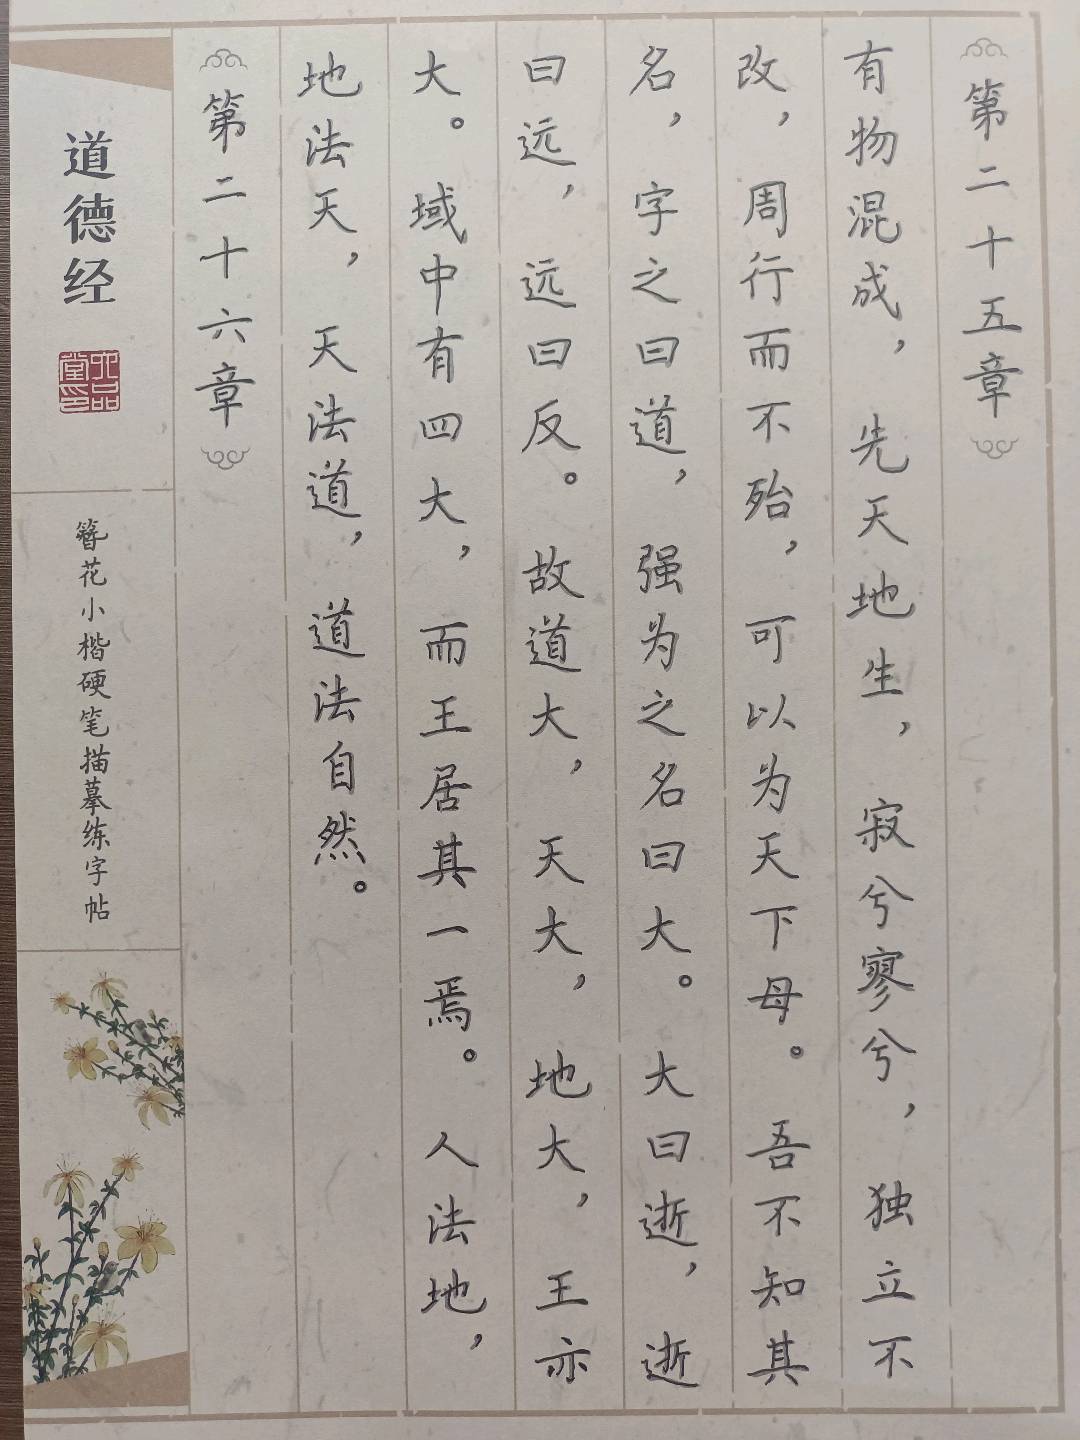 第二十五章
有物混成，先天地生，寂兮寥兮，独立不
改，周行而不殆，可以为天下母。吾不知其
名，字之曰道，强为之名曰大。大曰逝，逝
曰远，远曰反。故道大，天大，地大，王亦
大。域中有四大，而王居其一焉。人法地，
地法天，天法道，道法自然。
第二十六章
道德经
六品堂印
簪花小楷硬笔描摹练字帖